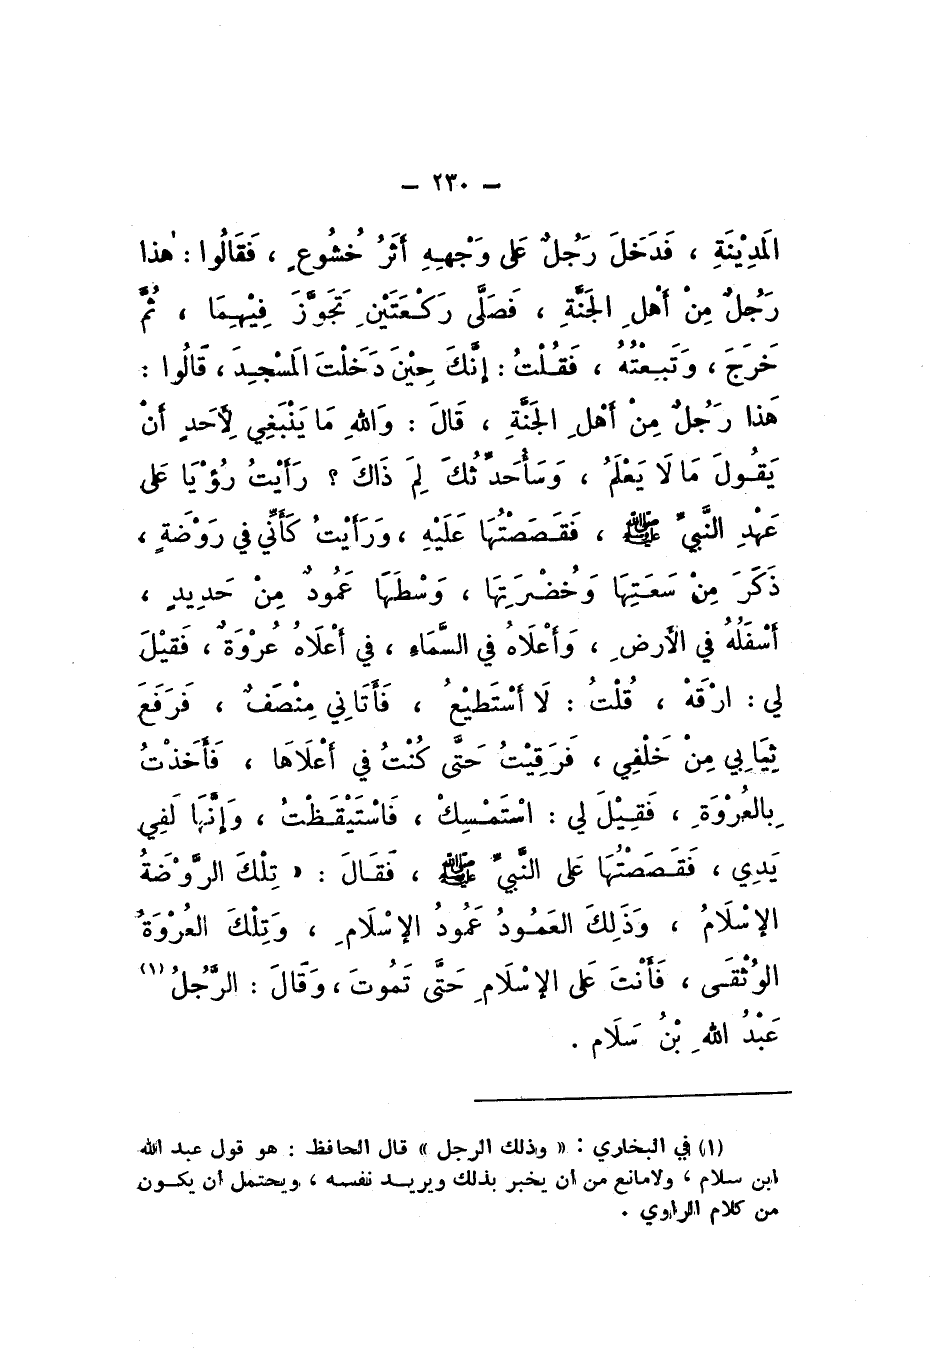 – ٢٣٠ –
المَدِيْنَةِ ، فَدَخَلَ رَجُلٌ عَلى وَجْهِهِ أَثَرُ خُشُوعٍ ، فَقَالُوا : هٰذا
رَجُلٌ مِنْ أَهْلِ الجَنَّةِ ، فَصَلَّى رَكْعَتَيْنِ تَجَوَّزَ فِيْهِمَا ، ثُمَّ
خَرَجَ ، وَتَبِعْتُهُ ، فَقُلْتُ : إِنَّكَ حِيْنَ دَخَلْتَ المَسْجِدَ ، قَالُوا :
هَذا رَجُلٌ مِنْ أَهْلِ الجَنَّةِ ، قَالَ : وَاللهِ مَا يَنْبَغِي لِأَحَدٍ أَنْ
يَقُولَ مَا لَا يَعْلَمُ ، وَسَأُحَدِّثُكَ لِمَ ذَاكَ ؟ رَأَيْتُ رُؤْيَا عَلى
عَهْدِ النَّبِيِّ ﷺ ، فَقَصَصْتُهَا عَلَيْهِ ، وَرَأَيْتُ كَأَنِّي في رَوْضَةٍ ،
ذَكَرَ مِنْ سَعَتِهَا وَخُضْرَتِهَا ، وَسْطَهَا عَمُودٌ مِنْ حَدِيدٍ ،
أَسْفَلُهُ في الأَرضِ ، وَأَعْلَاهُ في السَّمَاءِ ، في أَعْلَاهُ عُرْوَةٌ ، فَقِيْلَ
لي : ارْقَهْ ، قُلْتُ : لَا أَسْتَطِيْعُ ، فَأَتَانِي مِنْصَفٌ ، فَرَفَعَ
ثِيَابِي مِنْ خَلْفِي ، فَرَقِيْتُ حَتَّى كُنْتُ في أَعْلَاهَا ، فَأَخَذْتُ
بِالعُرْوَةِ ، فَقِيْلَ لي : اسْتَمْسِكْ ، فَاسْتَيْقَظْتُ ، وَإِنَّهَا لَفِي
يَدِي ، فَقَصَصْتُهَا عَلى النَّبِيِّ ﷺ ، فَقَالَ : « تِلْكَ الرَّوْضَةُ
الإِسْلَامُ ، وَذَلِكَ العَمُودُ عَمُودُ الإِسْلَامِ ، وَتِلْكَ العُرْوَةُ
الوُثْقَى ، فَأَنْتَ عَلى الإِسْلَامِ حَتَّى تَمُوتَ ، وَقَالَ : الرَّجُلُ (١)
عَبْدُ اللهِ بْنُ سَلَام .
(١) في البخاري : « وذلك الرجل » قال الحافظ : هو قول عبد الله
ابن سلام ، ولامانع من أن يخبر بذلك ويريد نفسه ، ويحتمل أن يكون
من كلام الراوي .